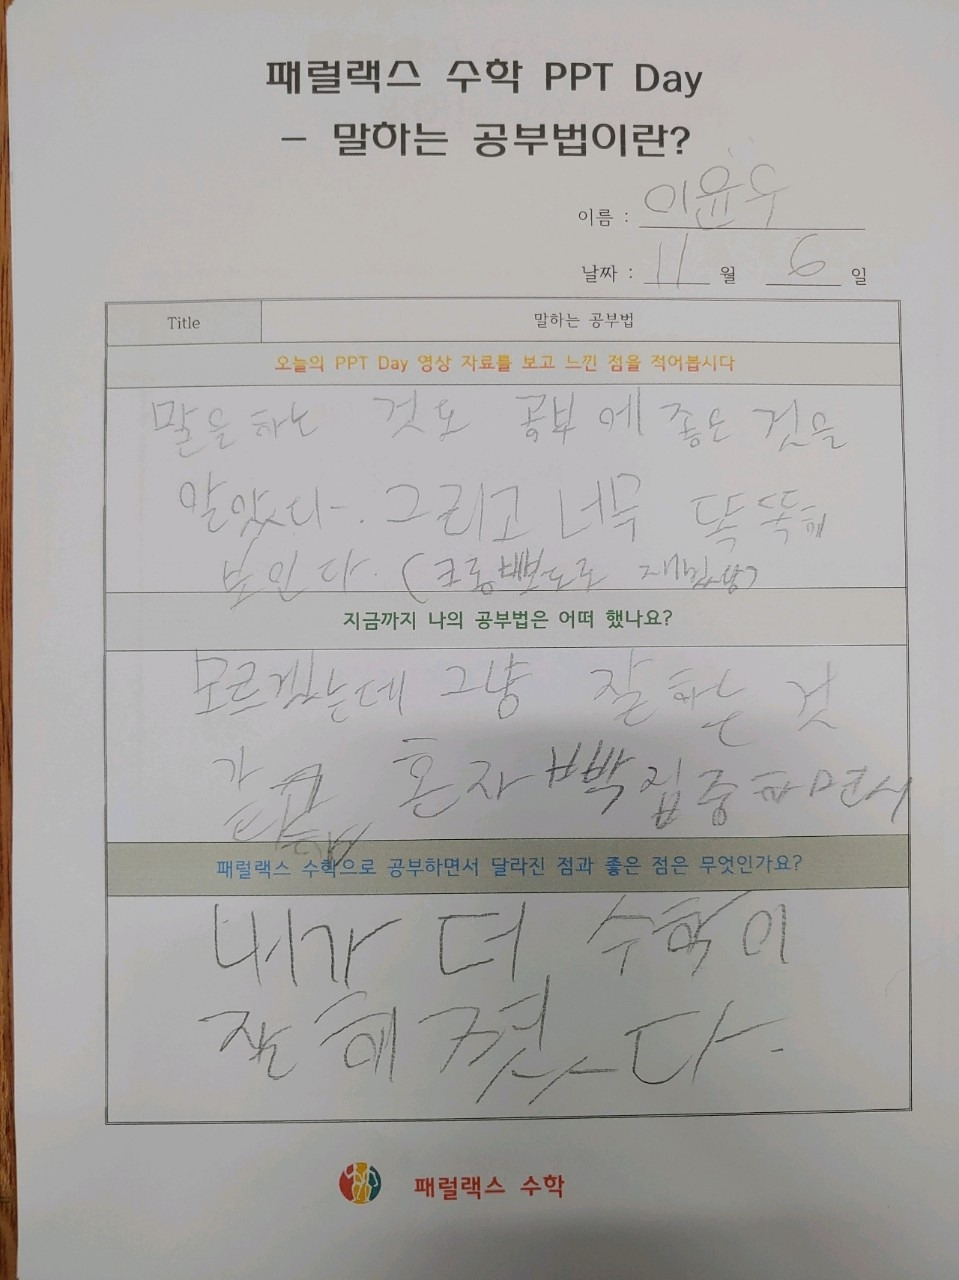 패럴랙스 수학 PPT Day
- 말하는 공부법이란?
이름 : 이윤수
날짜 : 11 월 9 일
Title 말하는 공부법
오늘의 PPT Day 영상 자료를 보고 느낀 점을 적어봅시다
말을 하는 것도 공부에 좋은 것을
알았다. 그리고 너무 똑똑해
보인다. (
지금까지 나의 공부법은 어떠 했나요?
모르겠는데 그냥 잘 하는 것
같고 혼자 빡 집중하면서
패럴랙스 수학으로 공부하면서 달라진 점과 좋은 점은 무엇인가요?
내가 더 수학이
잘 해졌다.
패럴랙스 수학